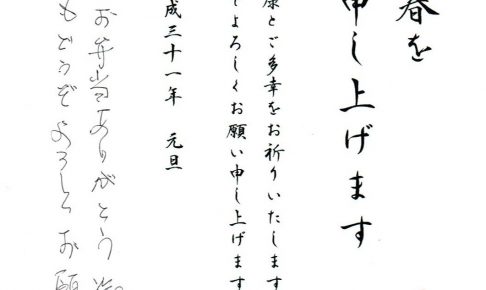 春を
申し上げます
康とご多幸をお祈りいたします
よろしくお願い申し上げます
成三十一年 元旦
お弁当ありがとう
もどうぞよろしくお願